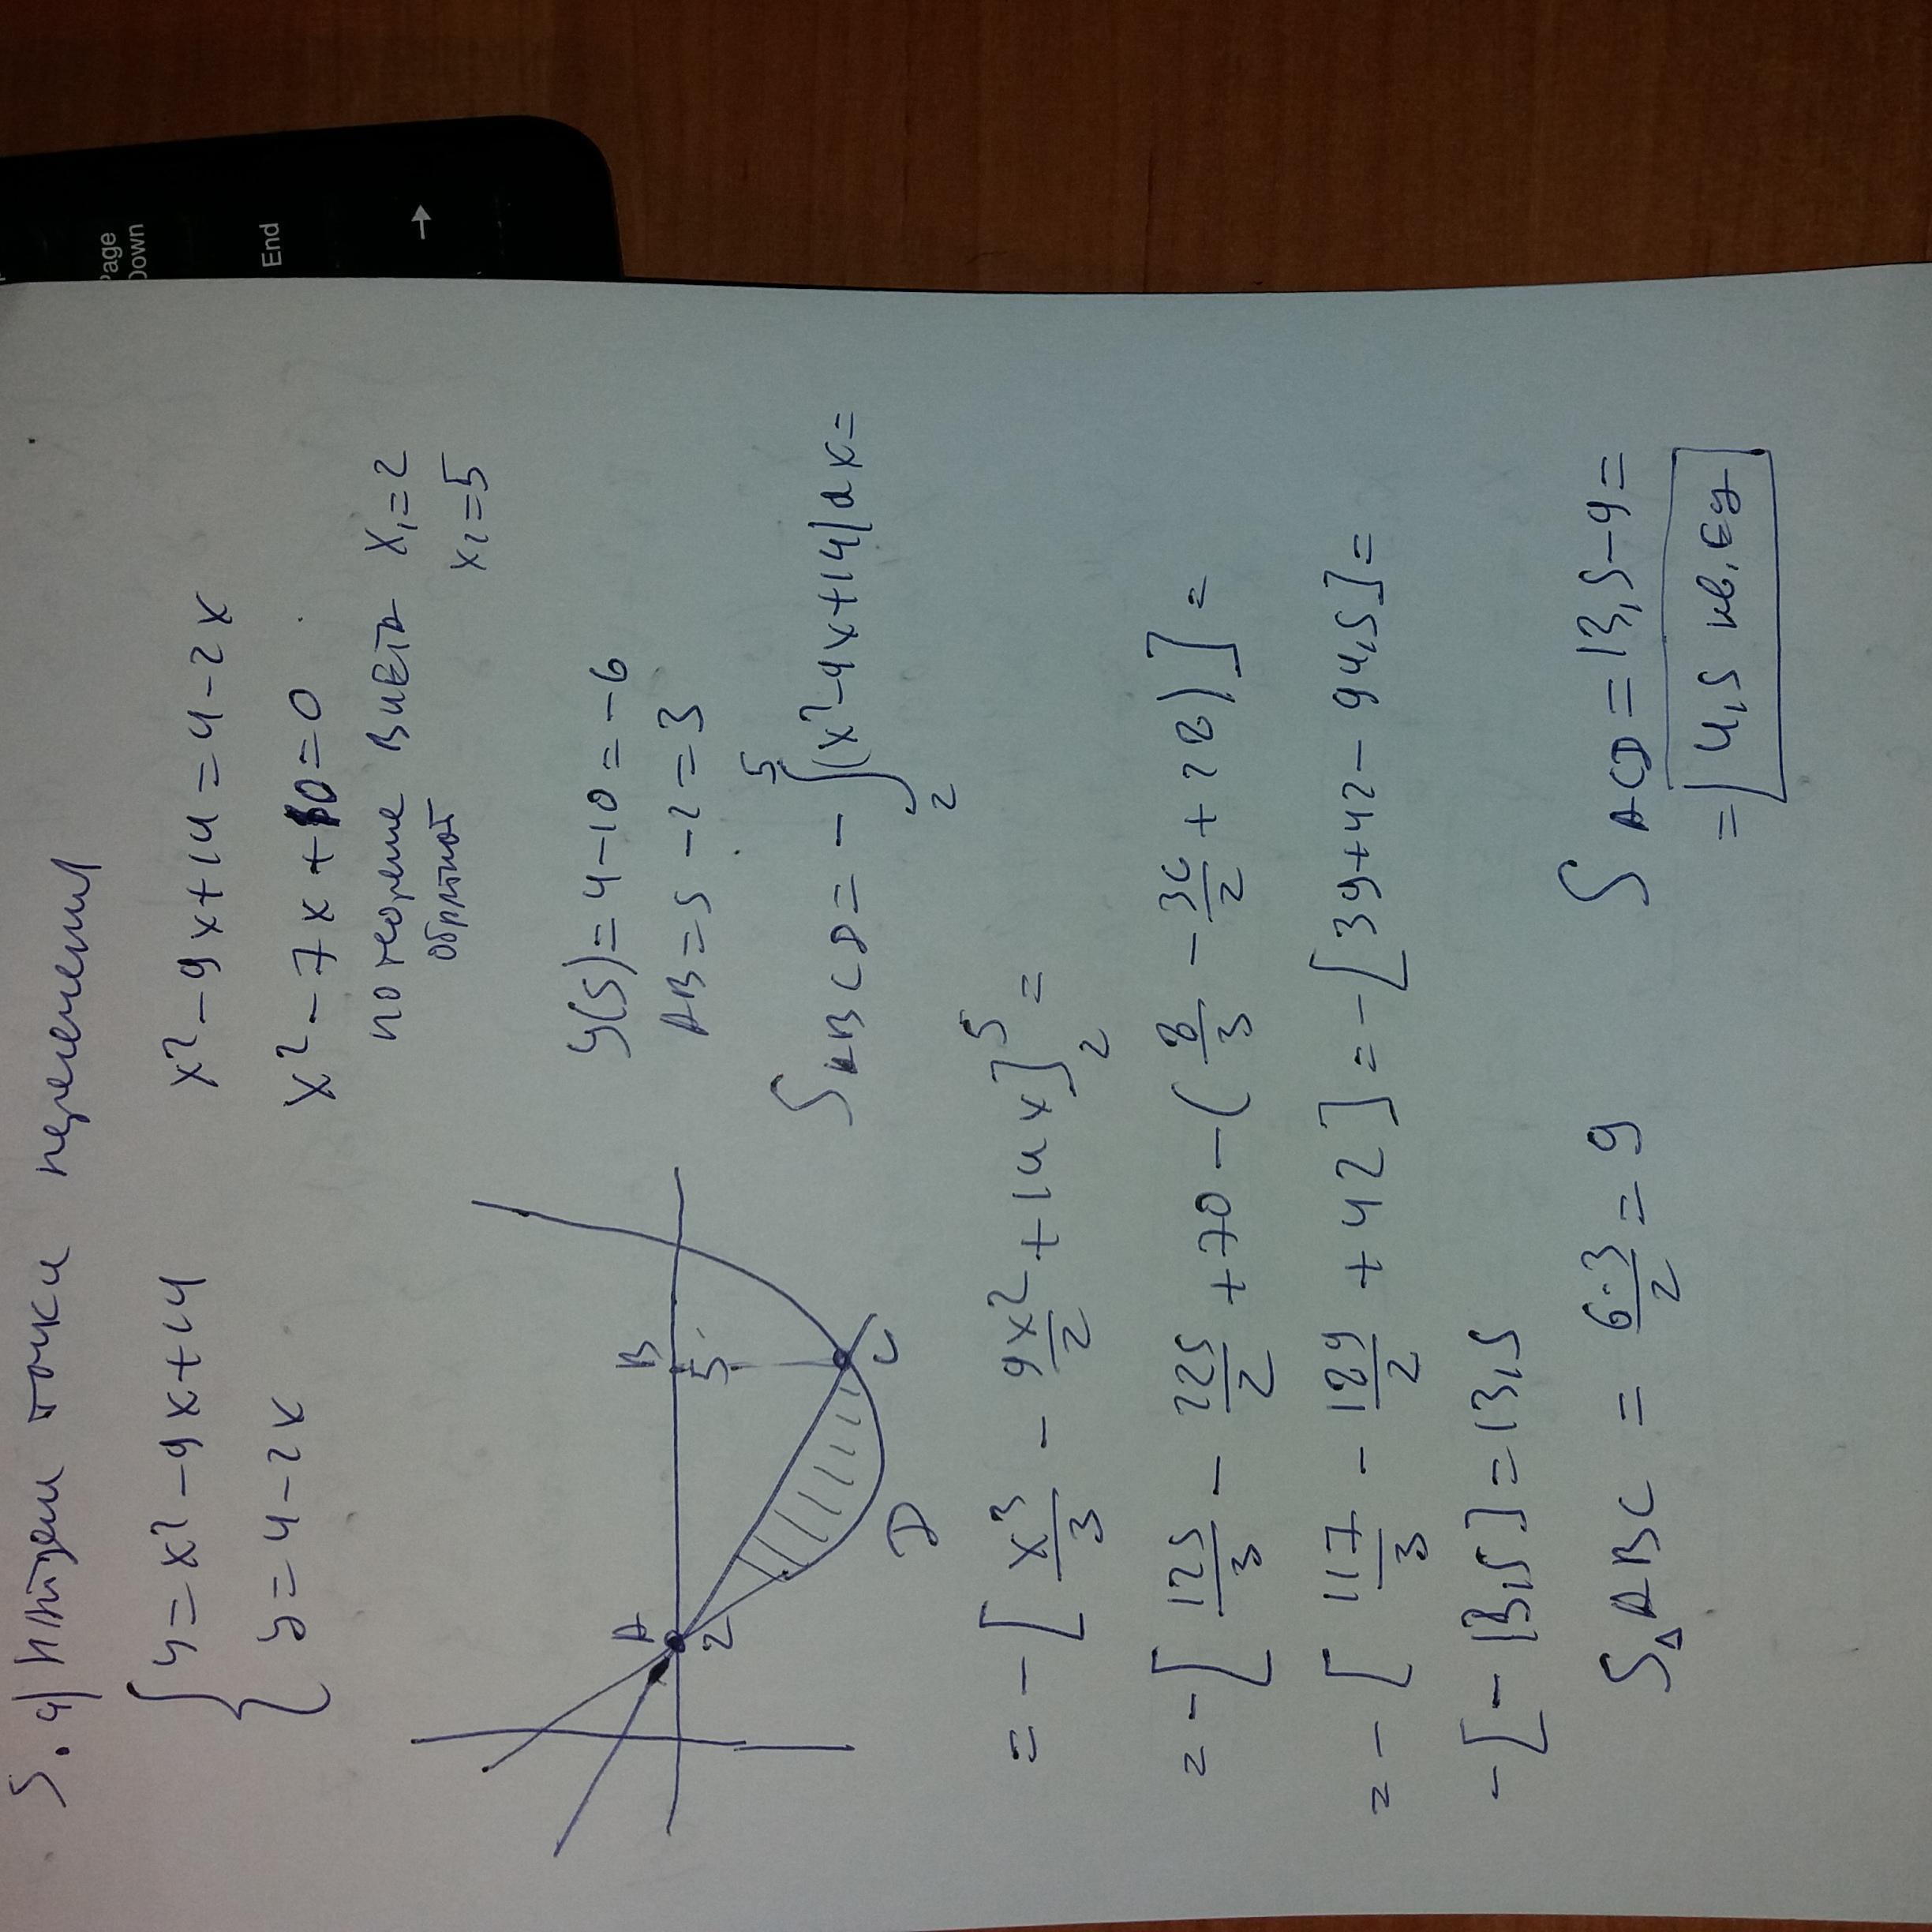 5.4) Найдем точки пересечения
{ y = x² - 9x + 14
y = 4 - 2x
x² - 9x + 14 = 4 - 2x
x² - 7x + 10 = 0
по теореме Виета x₁ = 2
обратной x₂ = 5
A
2
B
5
C
D
y(5) = 4 - 10 = -6
AB = 5 - 2 = 3
S ABCD = - ∫₂⁵ (x² - 9x + 14) dx =
= - [ x³/3 - 9x²/2 + 14x ]₂⁵ =
= - [ 125/3 - 225/2 + 70 - ( 8/3 - 36/2 + 28 ) ] =
= - [ 117/3 - 189/2 + 42 ] = - [ 39 + 42 - 94,5 ] =
- [ - 13,5 ] = 13,5
S△ABC = 6·3/2 = 9
S ACD = 13,5 - 9 =
= 4,5 кв. ед
Page
Down
End
→